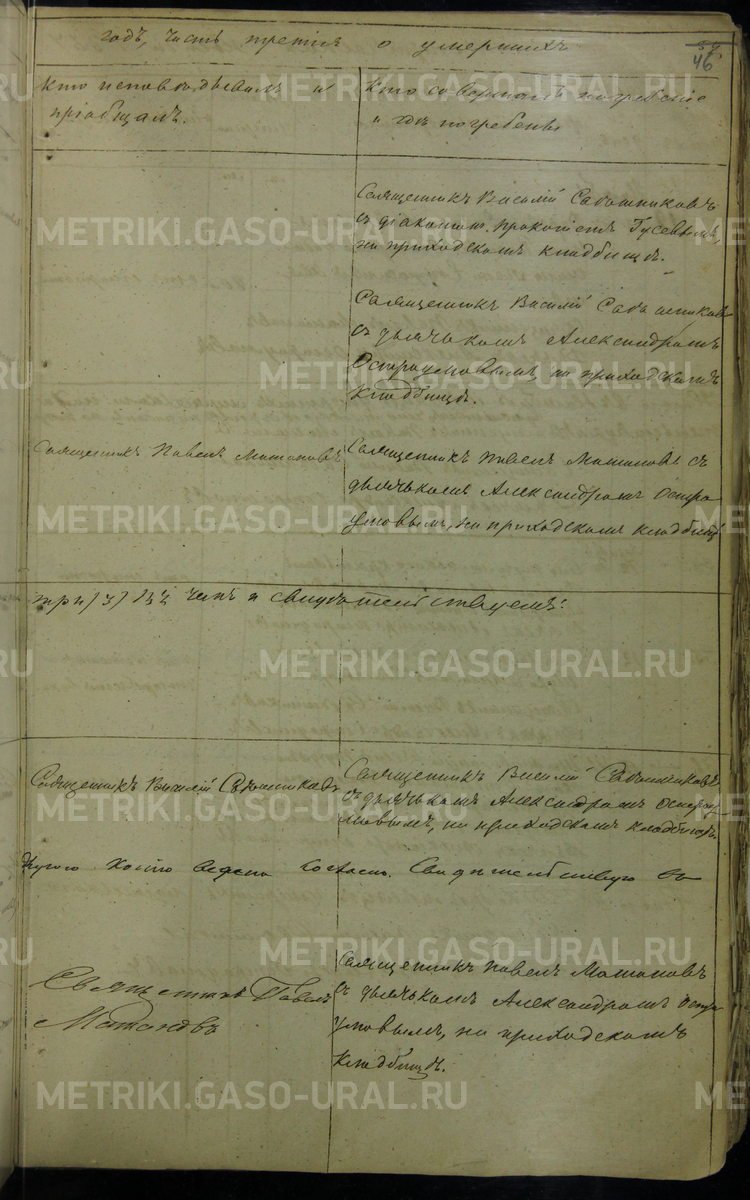 годъ, часть третія о умершихъ
46
Кто исповѣдывалъ и
пріобщалъ.
Кто совершалъ погребеніе
и гдѣ погребены
Священникъ Василій Сабошниковъ
съ діакономъ Прокопіемъ Гусевымъ,
на приходскомъ кладбищѣ.
Священникъ Василій
съ дьячькомъ Александромъ
Остроумовымъ, на приходскомъ
кладбищѣ.
Священникъ Павелъ Матановъ
Священникъ Павелъ Матановъ съ
дьячькомъ Александромъ Остро
умовымъ, на приходскомъ кладбищѣ
три /3/ въ чемъ и свидѣтельствуемъ:
Священникъ Василій
Священникъ Василій
съ дьячькомъ Александромъ Остроу
мовымъ, на приходскомъ кладбищѣ.
ведена согласно. Свидѣтельствую въ
Священникъ Павелъ
Матановъ
Священникъ Павелъ Матановъ
съ дьячькомъ Александромъ Остро
умовымъ, на приходскомъ
кладбищѣ.
METRIKI.GASO-URAL.RU